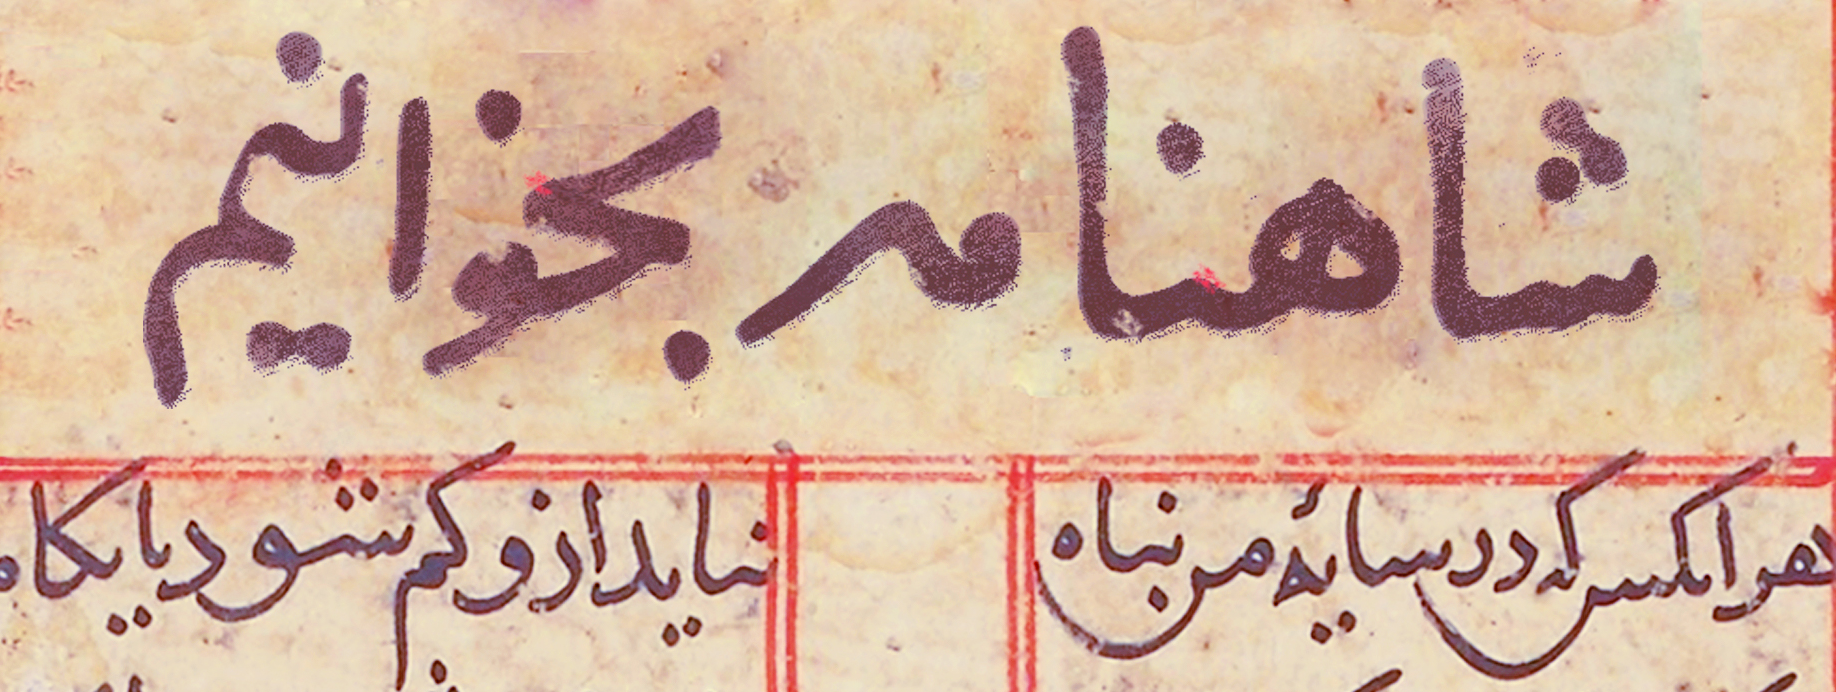 شاهنامه بخوانیم
هر انکس که در سایهٔ من پناه
نیاید ازو کم شود پایگاه